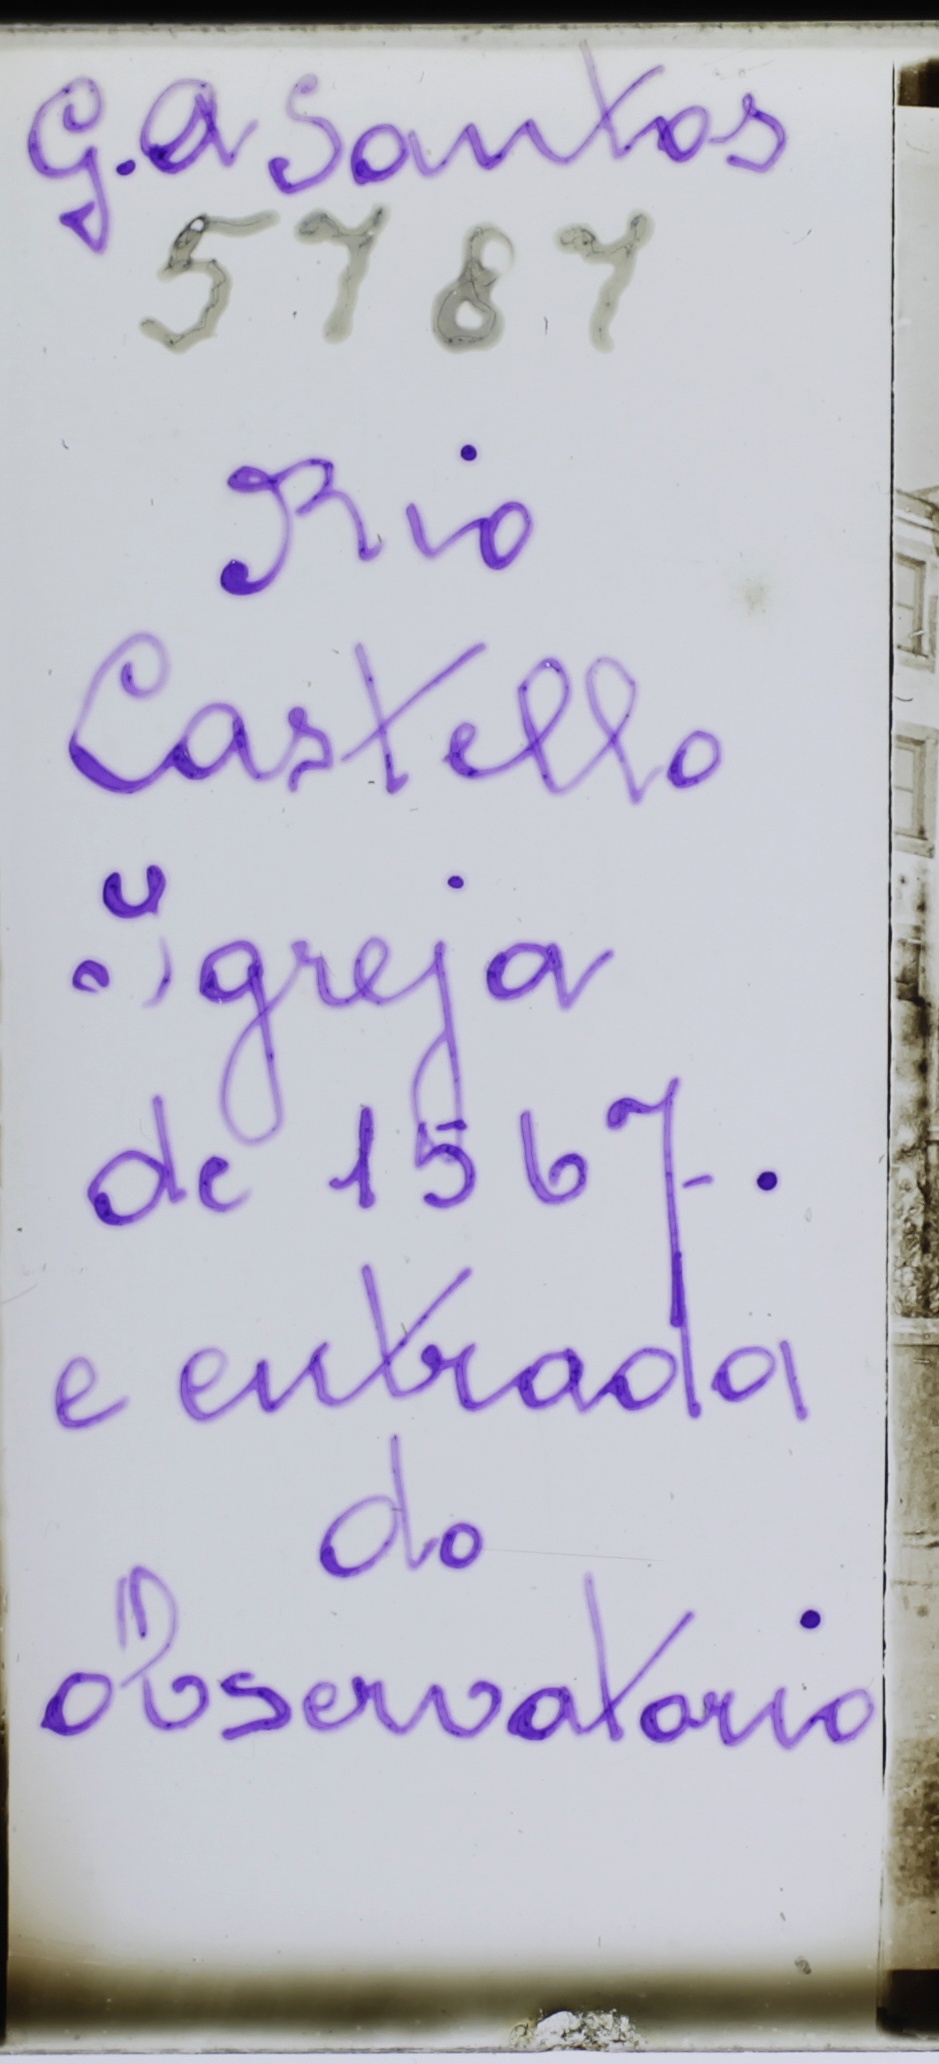 G. A Santos
5787
Rio
Castello
igreja
de 1567.
e entrada
do
observatorio